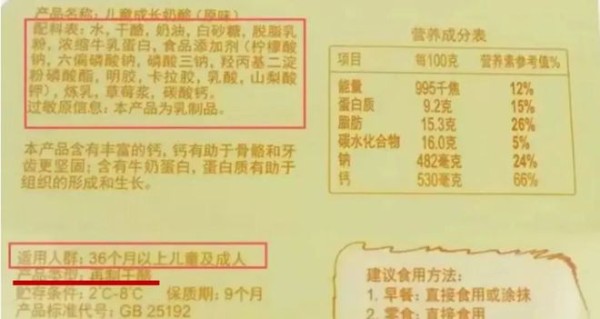 产品名称: 儿童成长奶酪 (原味)
配料表: 水, 干酪, 奶油, 白砂糖, 脱脂乳
粉, 浓缩牛乳蛋白, 食品添加剂 (柠檬酸
钠, 六偏磷酸钠, 磷酸三钠, 羟丙基二淀
粉磷酸酯, 明胶, 卡拉胶, 乳酸, 山梨酸
钾), 炼乳, 草莓浆, 碳酸钙。
过敏原信息: 本产品为乳制品。
本产品含有丰富的钙, 钙有助于骨骼和牙
齿更坚固; 含有牛奶蛋白, 蛋白质有助于
组织的形成和生长。
适用人群: 36个月以上儿童及成人
产品类型: 再制干酪
贮存条件: 2℃-8℃ 保质期: 9个月
产品标准代号: GB 25192
营养成分表
项目 每100克 营养素参考值%
能量 995千焦 12%
蛋白质 9.2克 15%
脂肪 15.3克 26%
碳水化合物 16.0克 5%
钠 482毫克 24%
钙 530毫克 66%
建议食用方法:
1. 早餐: 直接食用或涂抹
2. 零食: 直接食用